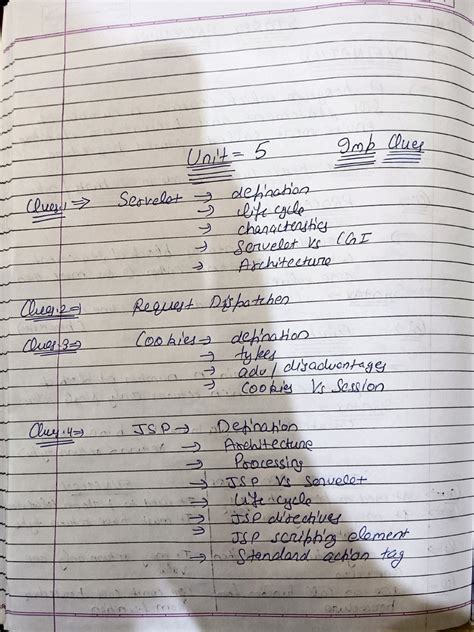 Unit = 5 Imp Ques
Ques.1 ⇒ Servelet → defination
→ life cycle
→ characteristics
→ Servelet Vs CGI
→ Architecture
Ques.2 ⇒ Request Dispatcher
Ques.3 ⇒ Cookies → defination
→ types
→ adv / disadvantages
→ Cookies Vs Session
Ques.4 ⇒ JSP → Defination
→ Architecture
→ Processing
→ JSP Vs Servelet
→ Life cycle
→ JSP directives
→ JSP scripting element
→ Standard action tag